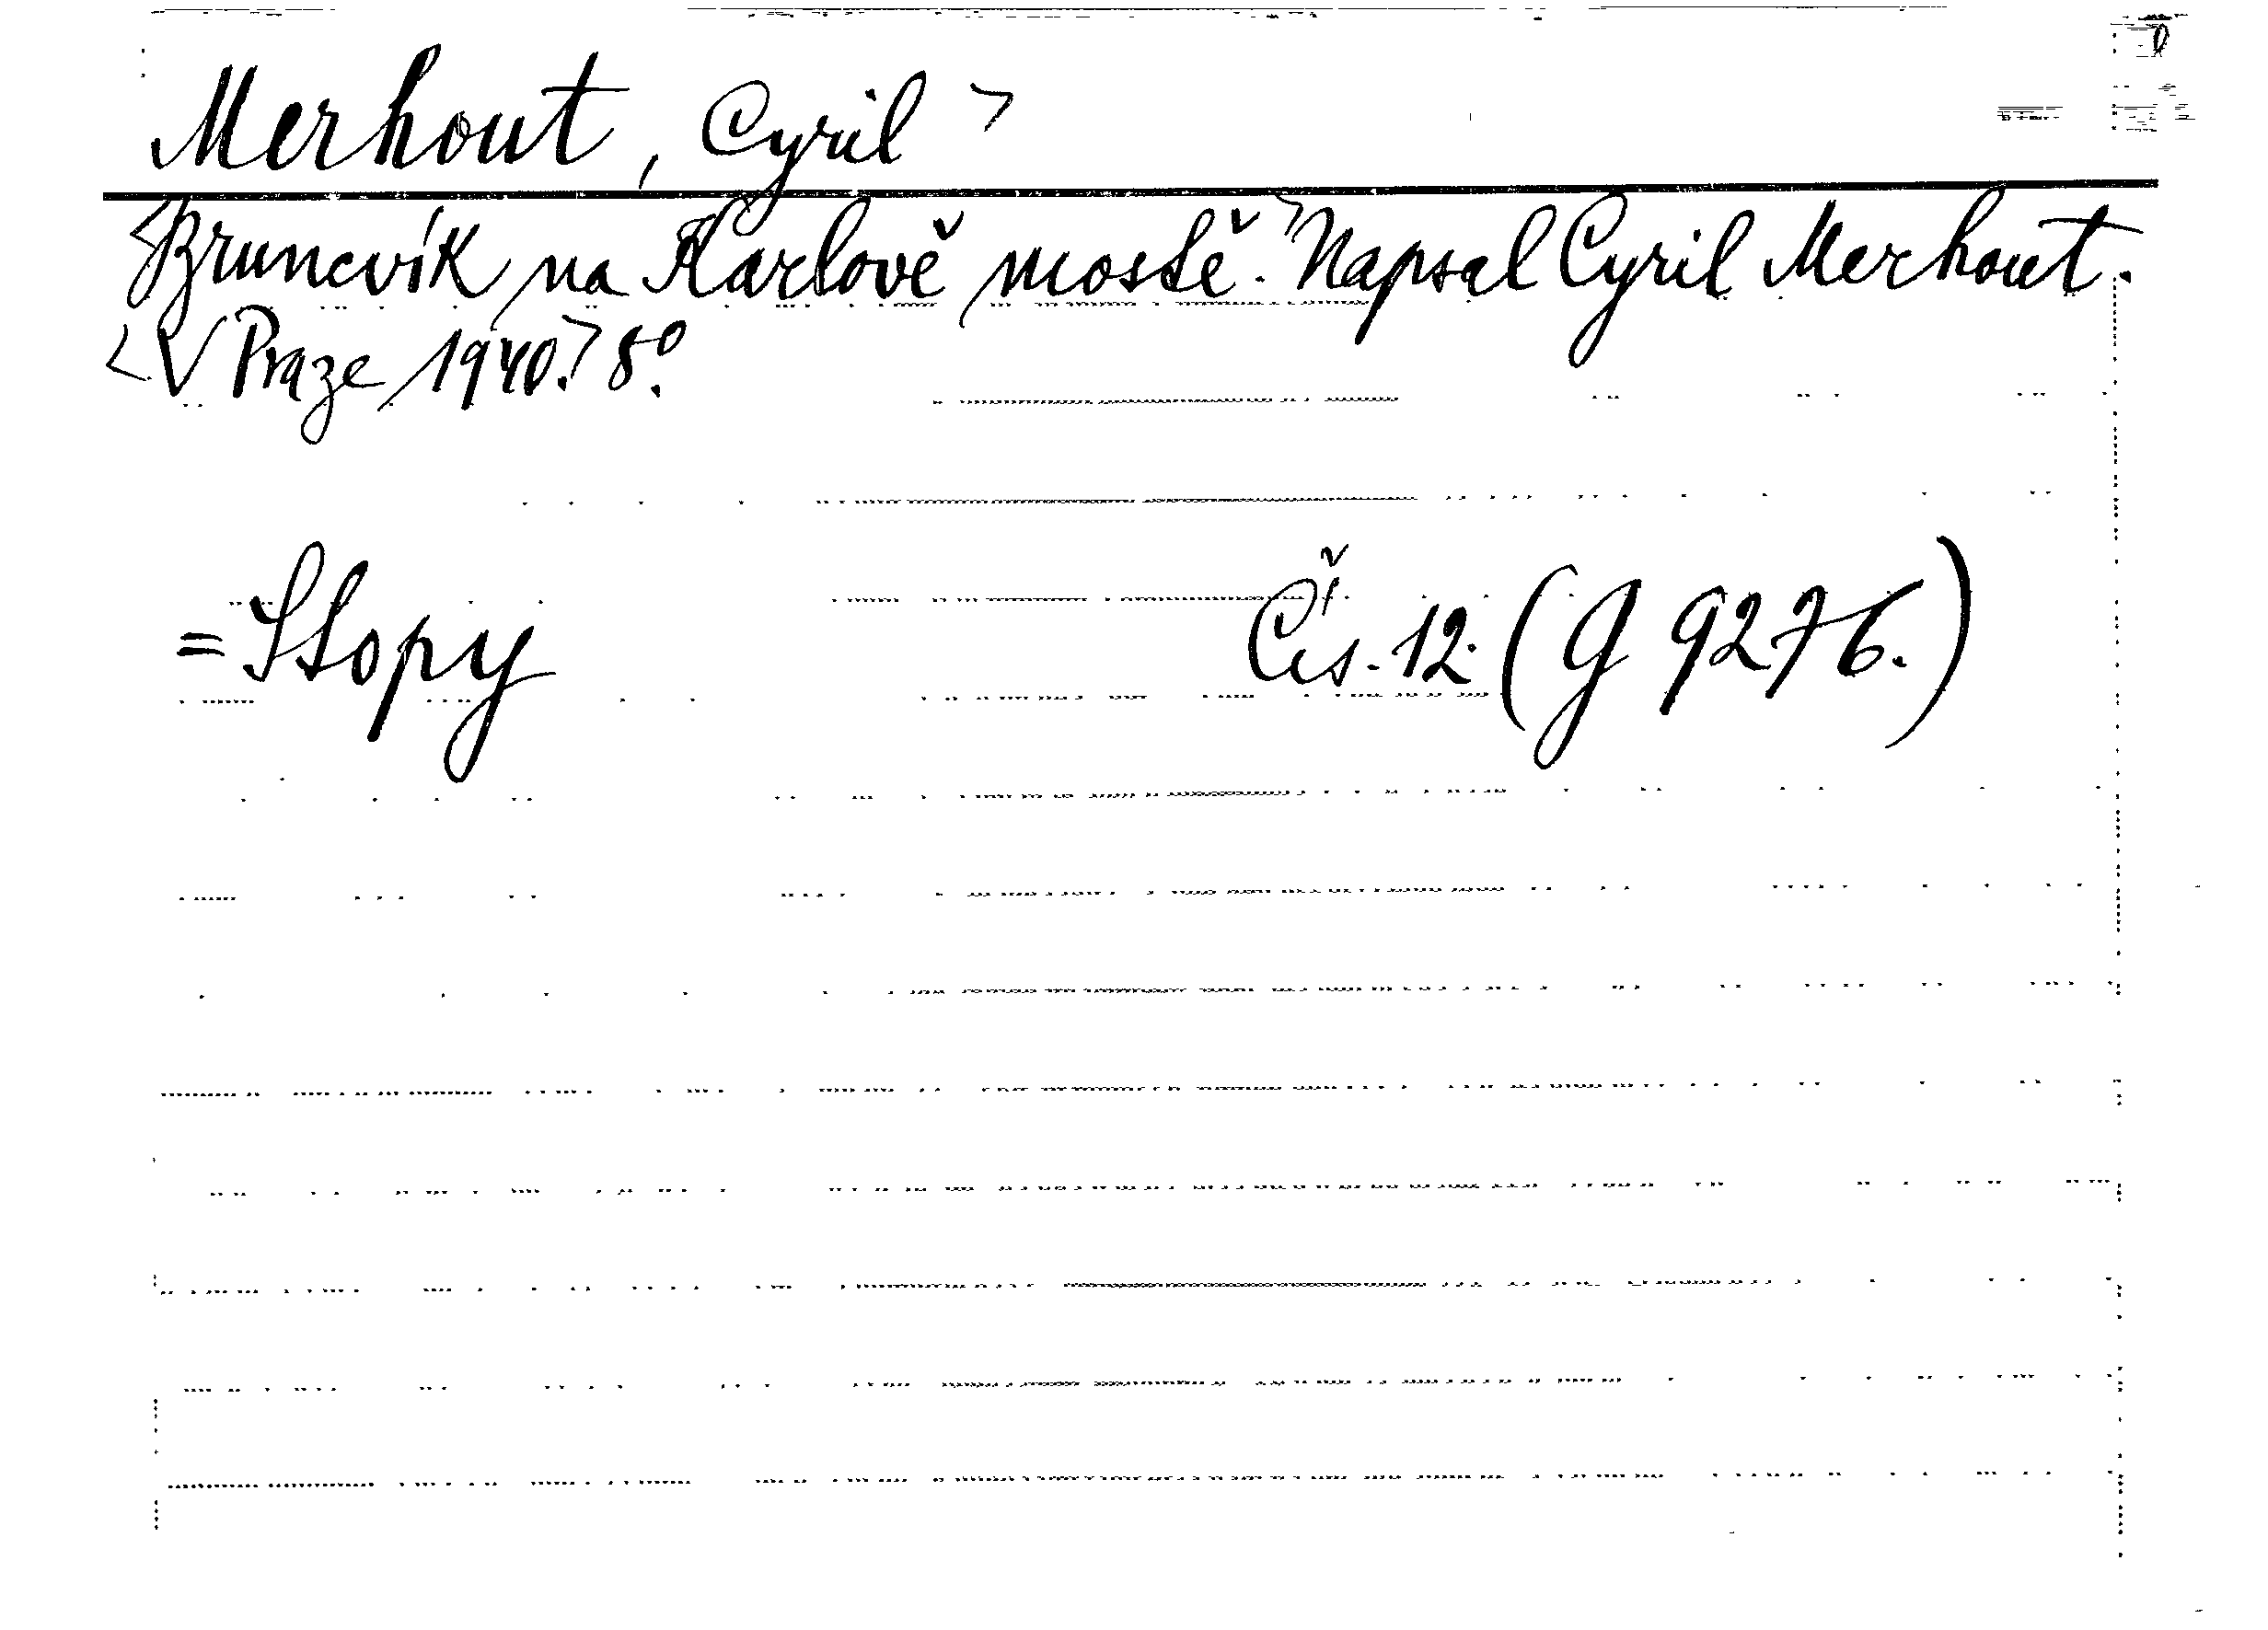 Merhout, Cyril >
<Bruncvík na Karlově mostě.> Napsal Cyril Merhout.
<V Praze 1940.> 8°.
= Stopy Čís. 12. (G 9276.)